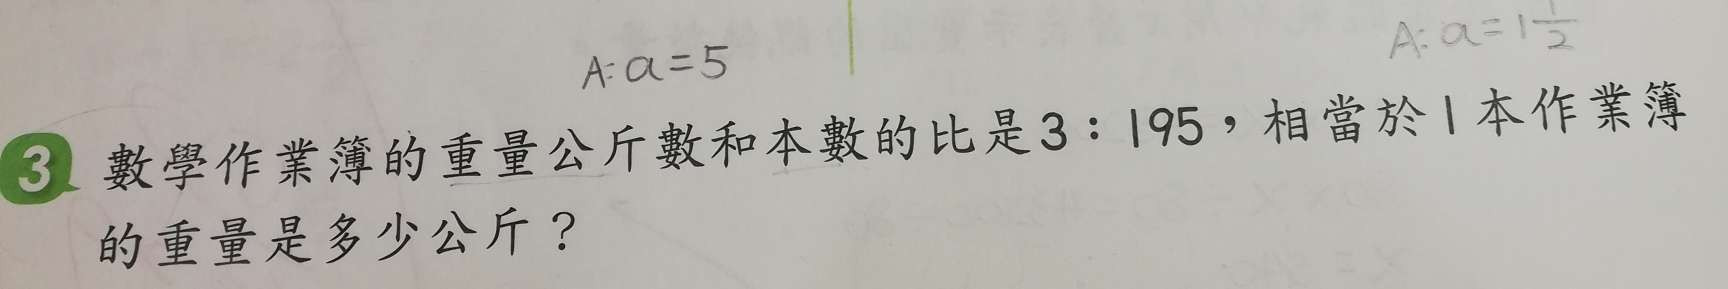 A: a=5
A: a=1 1/2
3 數學作業簿的重量公斤數和本數的比是3：195，相當於1本作業簿
的重量是多少公斤？